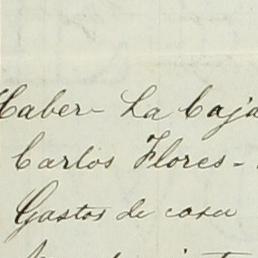 Haber - La Caja
Carlos Flores -
Gastos de casa